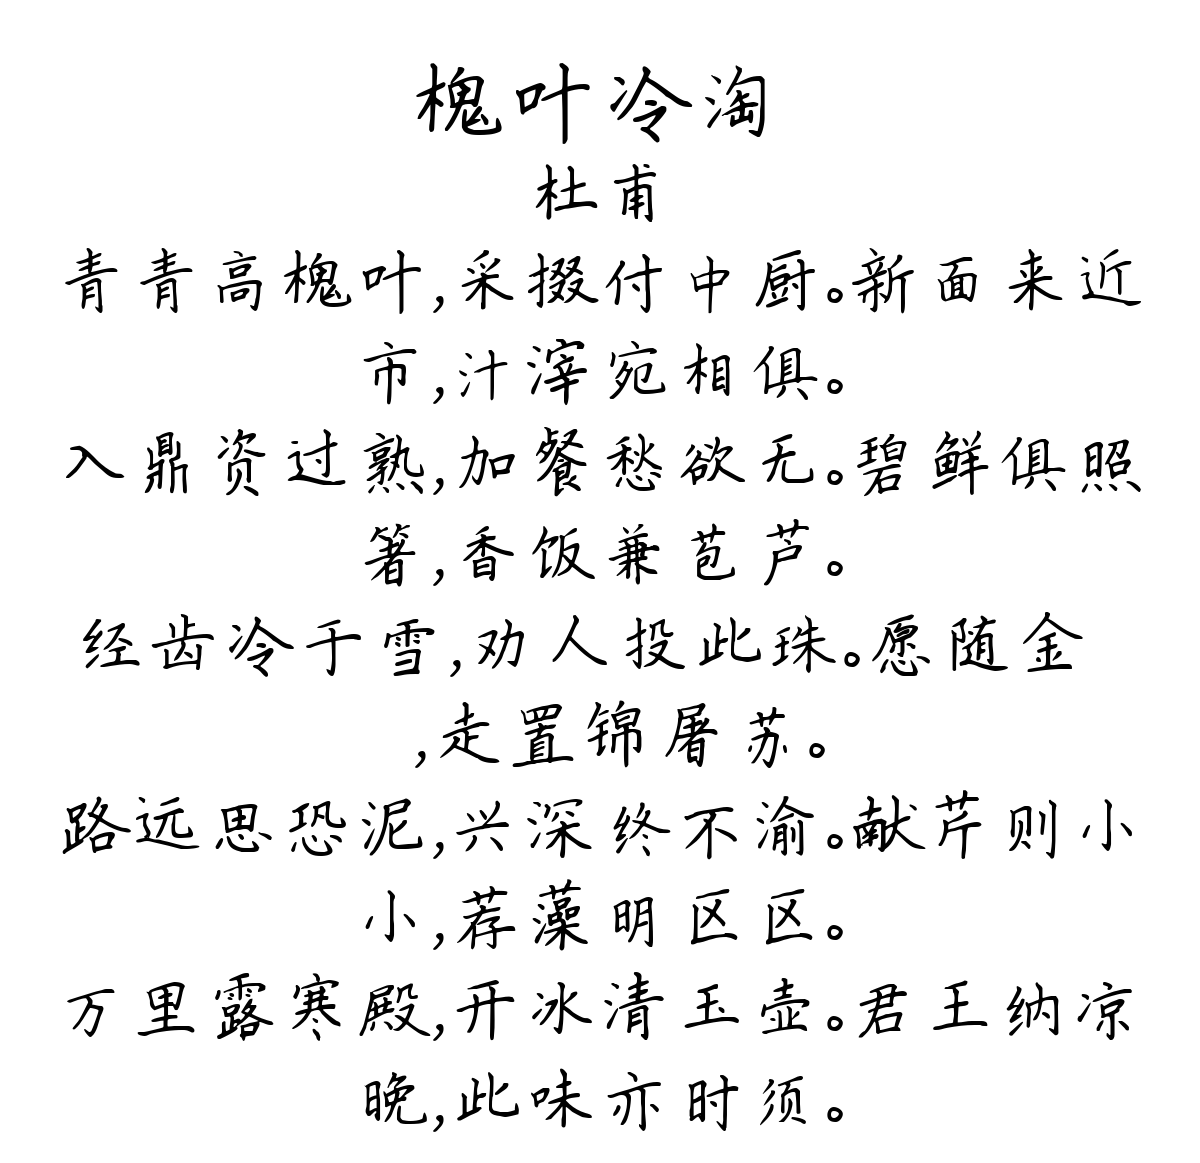 槐叶冷淘
杜甫
青青高槐叶,采掇付中厨。新面来近
市,汁滓宛相俱。
入鼎资过熟,加餐愁欲无。碧鲜俱照
箸,香饭兼苞芦。
经齿冷于雪,劝人投此珠。愿随金
,走置锦屠苏。
路远思恐泥,兴深终不渝。献芹则小
小,荐藻明区区。
万里露寒殿,开冰清玉壶。君王纳凉
晚,此味亦时须。